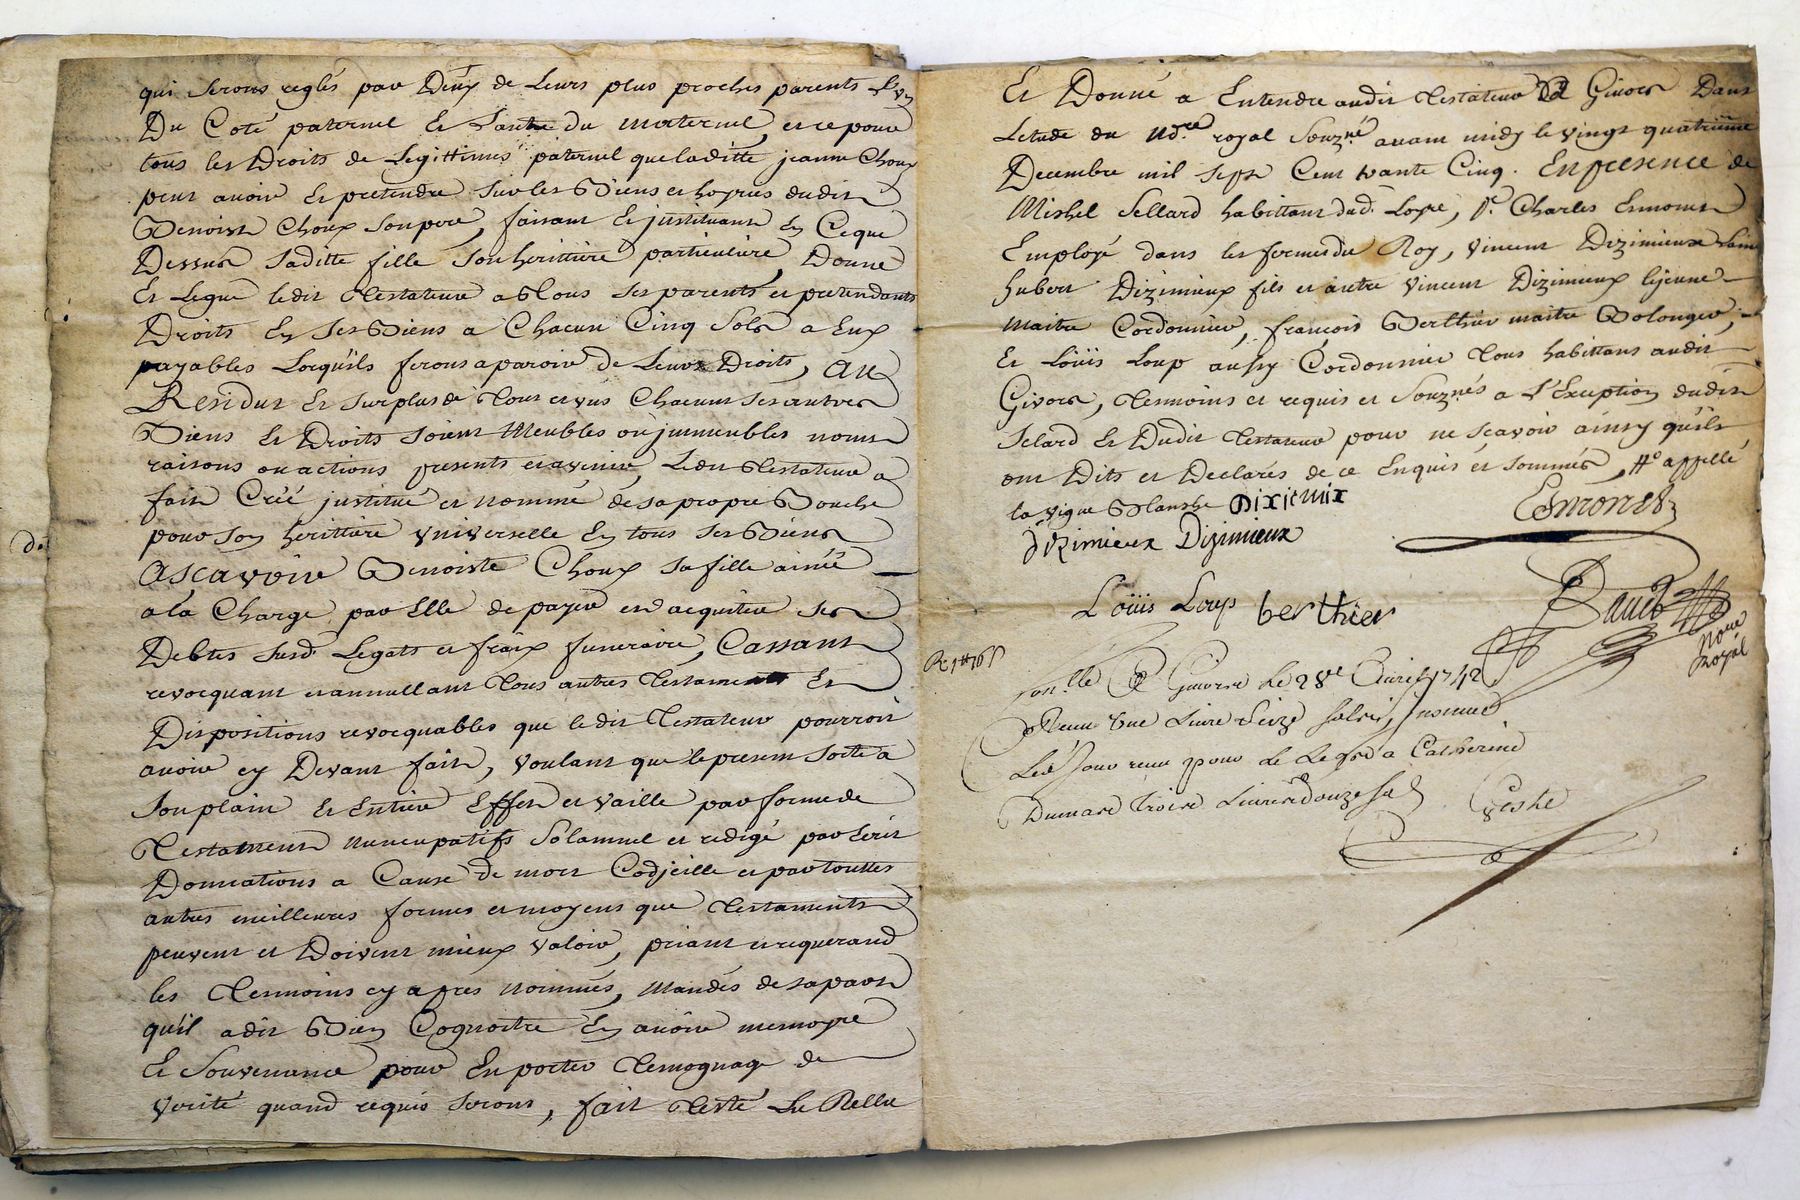 qui Serons reglés par Deux de Leurs plus proches parents L'un
Du Coté paternel Et Lautre du maternel, et ce pour
tous les Droits de Legittimes paternel que laditte jeanne Choux
peut avoir Et pretendre sur les Biens et hoyries dudit
Benoist Choux Son pere, faisant Et jnstituant En Ceque
Dessus Saditte fille Son herittiére particuliére, Donne
Et Legue ledit Testateur a Tous Ses parents et pretendants
Droits En Ses Biens a Chacun Cinq Sols a Eux
payables Lorquils feront aparoir de Leurs Droits, Au
Residut Et Surplus de Tous et uns Chacuns Ses autres
Biens Et Droits Soient Meubles ou jmmeubles noms
raisons ou actions presents et avenir, Ledit Testateur a
fait Créé justitué et nommé de sa propre Bouche
pour Son herittiere Vniverselle En tous Ses Biens
Ascavoir Benoiste Choux Sa fille ainée
a la Charge par Elle de payer et acquitter Ses
Debtes Susd. Legats et fraix funeraire, Cassant
revocquant et annullant Tous autres Testaments Et
Dispositions revocquables que ledit Testateur pourroit
avoir cy Devant fait, voulant que le present Sorte a
Son plain Et Entier Effet et vaille par forme de
Testament nuncupatifs Solamnel et redigé par Ecrit
Donnations a Cause de mort Codjcille et par touttes
autres meilleures formes et moyens que Testaments
peuvent et Doivent mieux valoir, priant et requerand
les Temoins cy apres nommés, Mandés de sa part
qu'il a dit Bien Cognoitre En avoir memoyre
Et Souvenance pour En porter Temognage de
Verité quand requis Seront, fait Testé Lu Rellu
d.
Et Donné a Entendre audit Testateur a Givors Dans
Letude du Ndre royal Souzné avant midy le vingt quatrième
Decembre mil Sept Cent trante Cinq. En presence de
Mishel Sellard habittant dud. Loyre, Sr. Charles Esmonet
Employé dans les fermes du Roy, Vincent Dizimieux Laine
hubert Dizimieux fils et autre Vincent Dizimieux lejeune
maitre Cordonnier, françois Berthier maitre Bolonger,
Et Loüis Loup aussy Cordonnier Tous habittans audit
Givors, Temoins et requis et Souznés a L'Exception dudit
Selard Et Dudit Testateur pour ne Scavoir ainsy quils
ont Dits et Declarés de ce Enquis et Sommés, appellé
la vigne Blanshe Dixjemix
Esmonet
dizimieux Dizimieux
Loüis Loup berthier
Royal
Givors Le 28e Avril 1742
Receu Une Livre Seize sols
receu pour Le Legs a Catherine
trois Livres douze sols